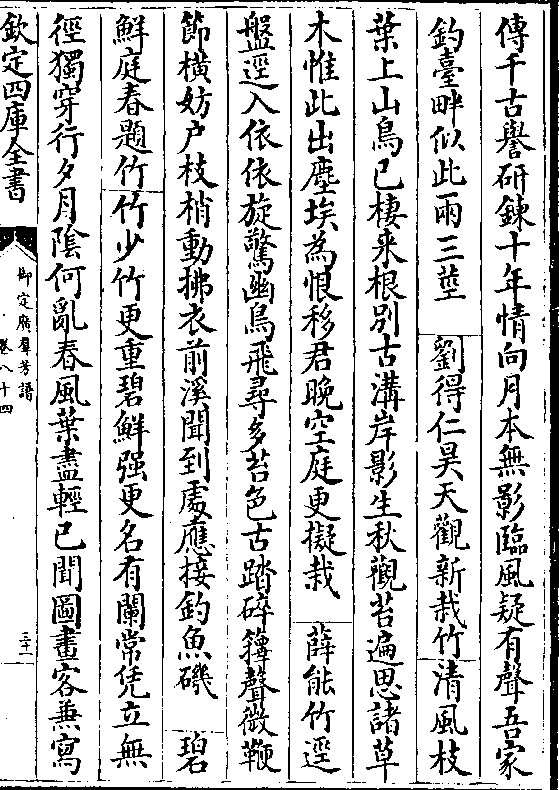 傳千古譽研鍊十年情向月本無影臨風疑有聲吾家
釣臺畔似此兩三莖　劉得仁昊天觀新栽竹清風枝
葉上山鳥已棲來根别古溝岸影生秋觀苔遍思諸草
木惟此出塵埃為恨移君晚空庭更擬栽　薛能竹逕
盤逕入依依旋驚幽鳥飛尋多苔色古踏碎籜聲微鞭
節横妨户枝梢動拂衣前溪聞到處應接釣魚磯　碧
鮮庭春題竹竹少竹更重碧鮮强更名有闌常凭立無
徑獨穿行夕月陰何亂春風葉盡輕已聞圖畫客兼寫
欽定四庫全書
御定廣羣芳譜
卷八十四
三十